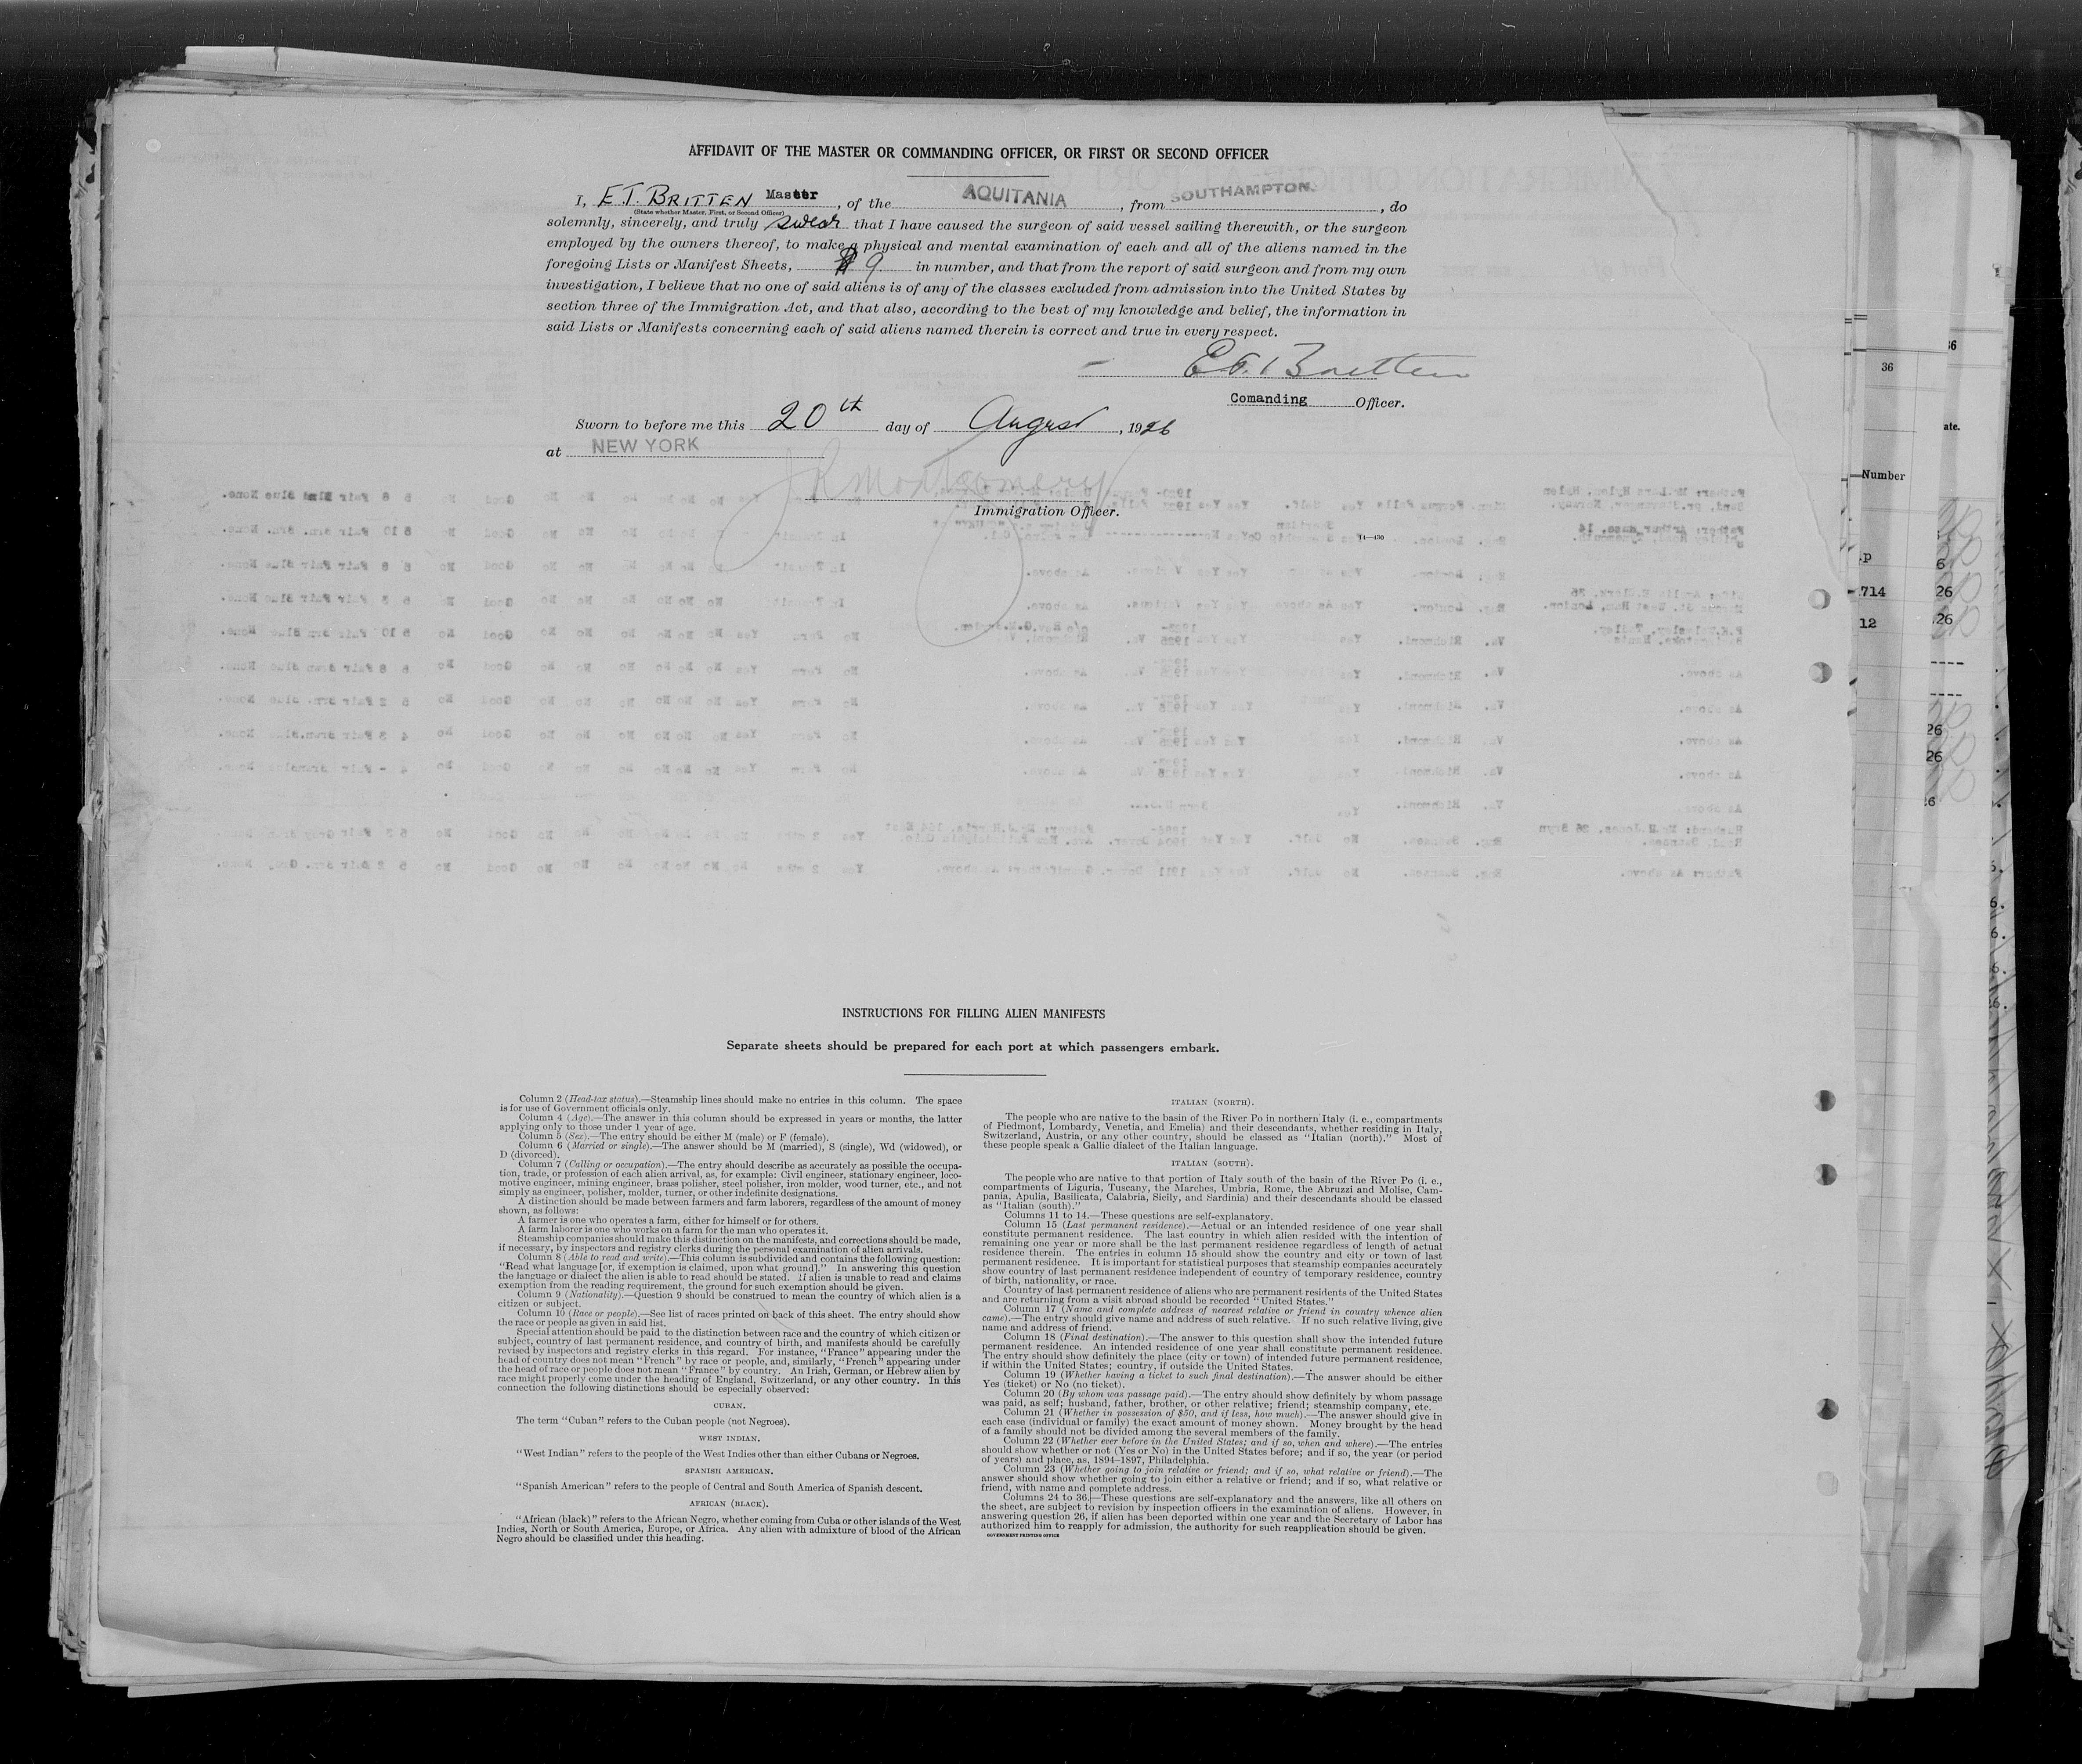 AFFIDAVIT OF THE MASTER OR COMMANDING OFFICER, OR FIRST OR SECOND OFFICER
I, E.T. BRITTEN Master, of the AQUITANIA, from SOUTHAMPTON., do
(State whether Master, First, or Second Officer)
solemnly, sincerely, and truly swear that I have caused the surgeon of said vessel sailing therewith, or the surgeon
employed by the owners thereof, to make a physical and mental examination of each and all of the aliens named in the
foregoing Lists or Manifest Sheets, 9 in number, and that from the report of said surgeon and from my own
investigation, I believe that no one of said aliens is of any of the classes excluded from admission into the United States by
section three of the Immigration Act, and that also, according to the best of my knowledge and belief, the information in
said Lists or Manifests concerning each of said aliens named therein is correct and true in every respect.
E.T. Britten
Comanding Officer.
Sworn to before me this 20th day of August, 1926
at NEW YORK
J R Montgomery
Immigration Officer.
14—430
INSTRUCTIONS FOR FILLING ALIEN MANIFESTS
Separate sheets should be prepared for each port at which passengers embark.
Column 2 (Head-tax status).—Steamship lines should make no entries in this column. The space
is for use of Government officials only.
Column 4 (Age).—The answer in this column should be expressed in years or months, the latter
applying only to those under 1 year of age.
Column 5 (Sex).—The entry should be either M (male) or F (female).
Column 6 (Married or single).—The answer should be M (married), S (single), Wd (widowed), or
D (divorced).
Column 7 (Calling or occupation).—The entry should describe as accurately as possible the occupa-
tion, trade, or profession of each alien arrival, as, for example: Civil engineer, stationary engineer, loco-
motive engineer, mining engineer, brass polisher, steel polisher, iron molder, wood turner, etc., and not
simply as engineer, polisher, molder, turner, or other indefinite designations.
A distinction should be made between farmers and farm laborers, regardless of the amount of money
shown, as follows:
A farmer is one who operates a farm, either for himself or for others.
A farm laborer is one who works on a farm for the man who operates it.
Steamship companies should make this distinction on the manifests, and corrections should be made,
if necessary, by inspectors and registry clerks during the personal examination of alien arrivals.
Column 8 (Able to read and write).—This column is subdivided and contains the following question:
"Read what language [or, if exemption is claimed, upon what ground]." In answering this question
the language or dialect the alien is able to read should be stated. If alien is unable to read and claims
exemption from the reading requirement, the ground for such exemption should be given.
Column 9 (Nationality).—Question 9 should be construed to mean the country of which alien is a
citizen or subject.
Column 10 (Race or people).—See list of races printed on back of this sheet. The entry should show
the race or people as given in said list.
Special attention should be paid to the distinction between race and the country of which citizen or
subject, country of last permanent residence, and country of birth, and manifests should be carefully
revised by inspectors and registry clerks in this regard. For instance, "France" appearing under the
head of country does not mean "French" by race or people, and, similarly, "French" appearing under
the head of race or people does not mean "France" by country. An Irish, German, or Hebrew alien by
race might properly come under the heading of England, Switzerland, or any other country. In this
connection the following distinctions should be especially observed:
CUBAN.
The term "Cuban" refers to the Cuban people (not Negroes).
WEST INDIAN.
"West Indian" refers to the people of the West Indies other than either Cubans or Negroes.
SPANISH AMERICAN.
"Spanish American" refers to the people of Central and South America of Spanish descent.
AFRICAN (BLACK).
"African (black)" refers to the African Negro, whether coming from Cuba or other islands of the West
Indies, North or South America, Europe, or Africa. Any alien with admixture of blood of the African
Negro should be classified under this heading.
ITALIAN (NORTH).
The people who are native to the basin of the River Po in northern Italy (i. e., compartments
of Piedmont, Lombardy, Venetia, and Emelia) and their descendants, whether residing in Italy,
Switzerland, Austria, or any other country, should be classed as "Italian (north)." Most of
these people speak a Gallic dialect of the Italian language.
ITALIAN (SOUTH).
The people who are native to that portion of Italy south of the basin of the River Po (i. e.,
compartments of Liguria, Tuscany, the Marches, Umbria, Rome, the Abruzzi and Molise, Cam-
pania, Apulia, Basilicata, Calabria, Sicily, and Sardinia) and their descendants should be classed
as "Italian (south)."
Columns 11 to 14.—These questions are self-explanatory.
Column 15 (Last permanent residence).—Actual or an intended residence of one year shall
constitute permanent residence. The last country in which alien resided with the intention of
remaining one year or more shall be the last permanent residence regardless of length of actual
residence therein. The entries in column 15 should show the country and city or town of last
permanent residence. It is important for statistical purposes that steamship companies accurately
show country of last permanent residence independent of country of temporary residence, country
of birth, nationality, or race.
Country of last permanent residence of aliens who are permanent residents of the United States
and are returning from a visit abroad should be recorded "United States."
Column 17 (Name and complete address of nearest relative or friend in country whence alien
came).—The entry should give name and address of such relative. If no such relative living, give
name and address of friend.
Column 18 (Final destination).—The answer to this question shall show the intended future
permanent residence. An intended residence of one year shall constitute permanent residence.
The entry should show definitely the place (city or town) of intended future permanent residence,
if within the United States; country, if outside the United States.
Column 19 (Whether having a ticket to such final destination).—The answer should be either
Yes (ticket) or No (no ticket).
Column 20 (By whom was passage paid).—The entry should show definitely by whom passage
was paid, as self; husband, father, brother, or other relative; friend; steamship company, etc.
Column 21 (Whether in possession of $50, and if less, how much).—The answer should give in
each case (individual or family) the exact amount of money shown. Money brought by the head
of a family should not be divided among the several members of the family.
Column 22 (Whether ever before in the United States; and if so, when and where).—The entries
should show whether or not (Yes or No) in the United States before; and if so, the year (or period
of years) and place, as, 1894–1897, Philadelphia.
Column 23 (Whether going to join relative or friend; and if so, what relative or friend).—The
answer should show whether going to join either a relative or friend; and if so, what relative or
friend, with name and complete address.
Columns 24 to 36.—These questions are self-explanatory and the answers, like all others on
the sheet, are subject to revision by inspection officers in the examination of aliens. However, in
answering question 26, if alien has been deported within one year and the Secretary of Labor has
authorized him to reapply for admission, the authority for such reapplication should be given.
GOVERNMENT PRINTING OFFICE
36
Number
714
12
26
26
26
26